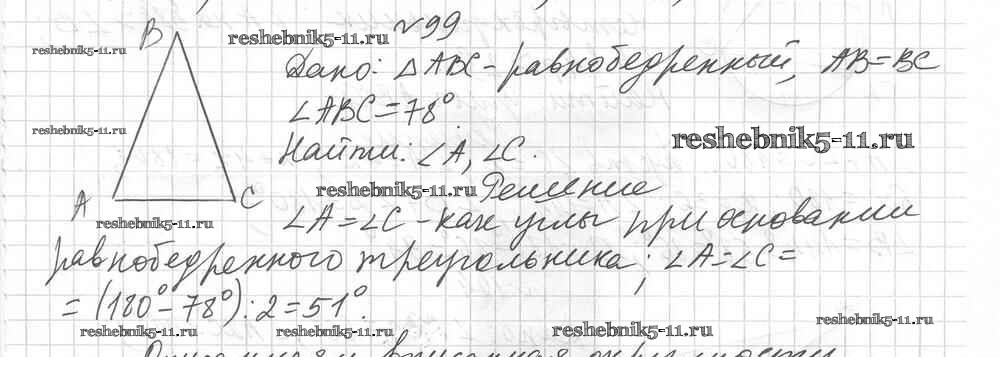 №99
B
reshebnik5-11.ru
reshebnik5-11.ru
Дано: △ABC - равнобедренный, AB=BC
∠ABC=78°
reshebnik5-11.ru
reshebnik5-11.ru
Найти: ∠A, ∠C.
reshebnik5-11.ru
Решение
A
C
reshebnik5-11.ru
∠A=∠C - как углы при основании
равнобедренного треугольника; ∠A=∠C=
=(180°-78°):2=51°.
reshebnik5-11.ru
reshebnik5-11.ru
reshebnik5-11.ru
reshebnik5-11.ru